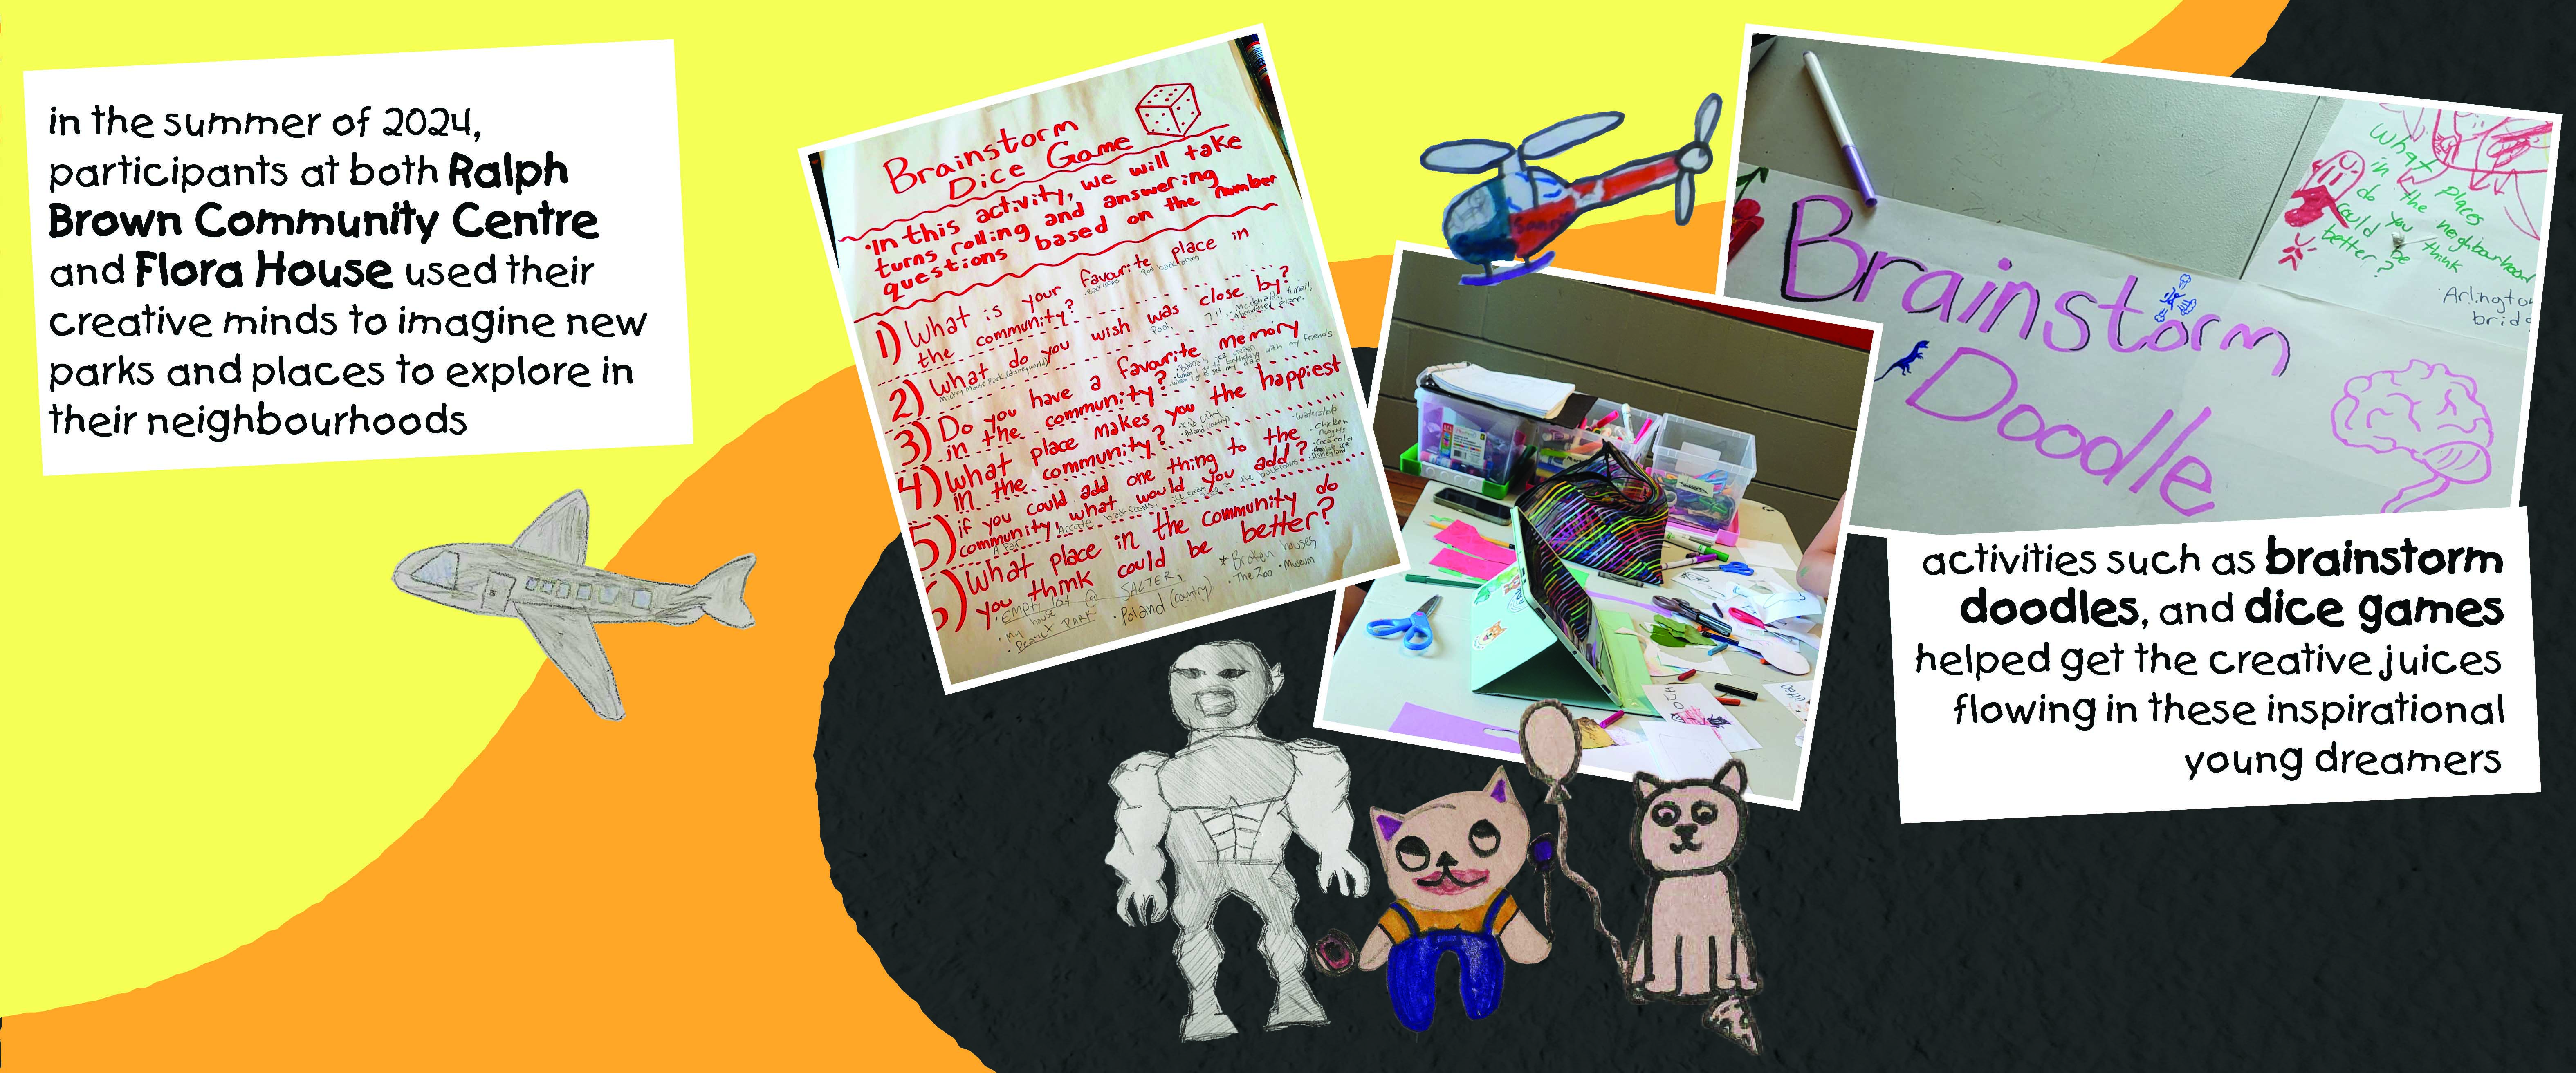 in the summer of 2024,
participants at both Ralph
Brown Community Centre
and Flora House used their
creative minds to imagine new
parks and places to explore in
their neighbourhoods
Brainstorm
Dice Game
•In this activity, we will take
turns rolling and answering
questions based on the number
1) What is your favourite place in
the community?
2) What do you wish was close by?
Pool, 7/11, Mcdonalds, A mall,
Mickey Mouse Park (disneyworld)
3) Do you have a favourite memory
in the community?
4) What place makes you the happiest
in the community?
• Kid City
• Poland (country)
5) if you could add one thing to the
community what would you add?
• A fair Arcade
• chicken
nuggets
• Coca cola
• Disneyland
6) What place in the community do
you think could be better?
• empty lot @ SALTER,
• my house
PARK
• Poland (country)
* Broken houses
• The Zoo • Museum
Brainstorm
Doodle
What places
in the neighbourhood
do you think
could be
better?
• Arlington
bridg
activities such as brainstorm
doodles, and dice games
helped get the creative juices
flowing in these inspirational
young dreamers